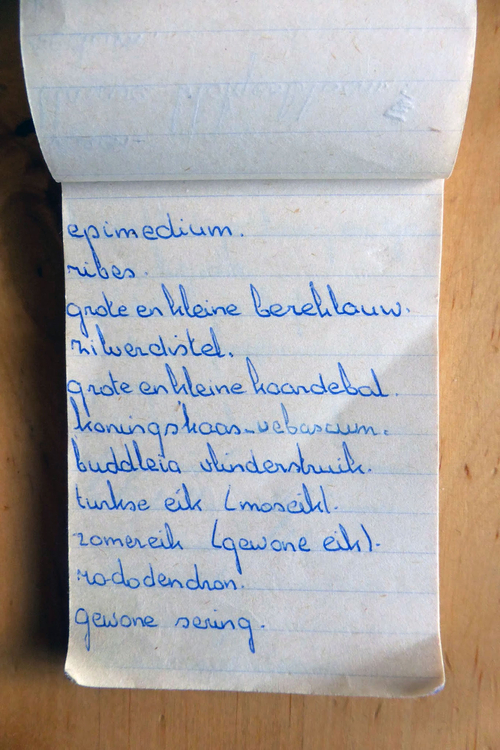 epimedium.
ribes.
grote en kleine bereklouw.
zilverdistel.
grote en kleine kaardebal.
koningskaas-vebascum.
buddleia vlinderstruik.
turkse eik (moseik).
zomereik (gewone eik).
rododendron.
gewone sering.